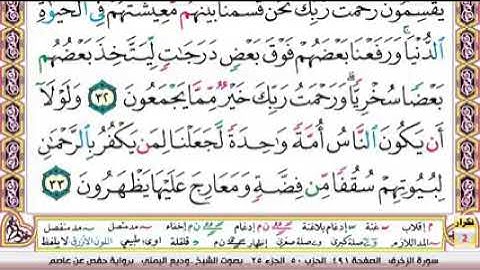 يَقْسِمُونَ رَحْمَتَ رَبِّكَ نَحْنُ قَسَمْنَا بَيْنَهُم مَّعِيشَتَهُمْ فِي الْحَيَوٰةِ
الدُّنْيَا وَرَفَعْنَا بَعْضَهُمْ فَوْقَ بَعْضٍ دَرَجَاتٍ لِّيَتَّخِذَ بَعْضُهُم
بَعْضًا سُخْرِيًّا وَرَحْمَتُ رَبِّكَ خَيْرٌ مِّمَّا يَجْمَعُونَ ٣٢ وَلَوْلَا
أَن يَكُونَ النَّاسُ أُمَّةً وَاحِدَةً لَّجَعَلْنَا لِمَن يَكْفُرُ بِالرَّحْمَٰنِ
لِبُيُوتِهِمْ سُقُفًا مِّن فِضَّةٍ وَمَعَارِجَ عَلَيْهَا يَظْهَرُونَ ٣٣
تكرار
2
م إقلاب غنة إدغام بلاغنة ن م إدغام ن م إخفاء مد متصل مد منفصل
المد اللازم صلة كبرى صلة صغرى إظهار ن م قلقلة اوى: طبيعي اللون الأزرق لا يلفظ
سورة الزخرف الصفحة ٤٩١ الحزب ٥٠ الجزء ٢٥ بصوت الشيخ وديع اليمني برواية حفص عن عاصم